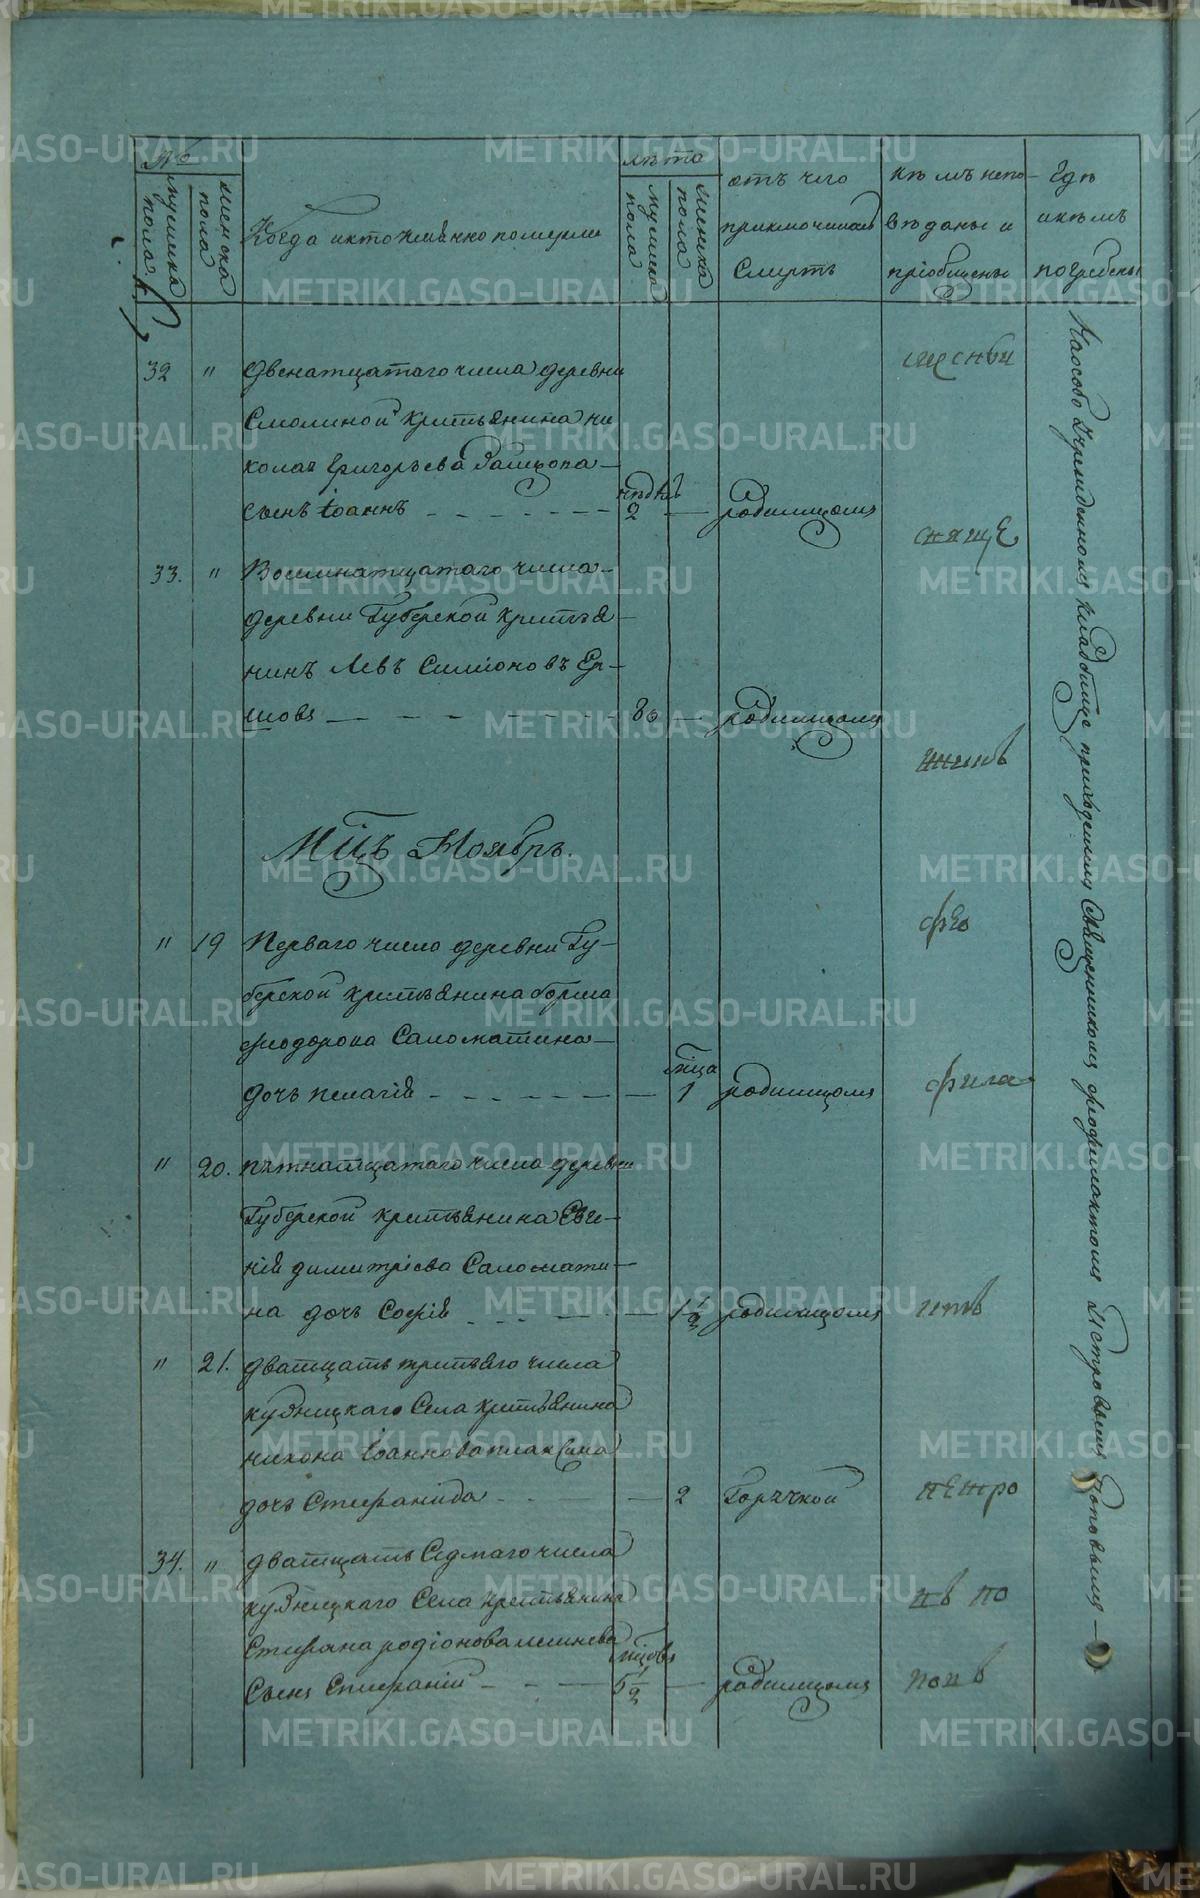 №
мужеска пола
женска пола
Когда и кто имянно померли
лѣта
мужеска пола
женска пола
отъ чего
приключилась
смерть
кѣмъ испо-
вѣданы и
пріобщены
Гдѣ
и кѣмъ
погребены
32 " Двенатцатаго числа деревни
Смолиной крестьянина ни
колая Григорьева Зайцова
сынъ Іоаннъ
недѣль
2 родимцомъ
33. " Восмнатцатаго числа
деревни Губерской крестья
нинъ Левъ Симіоновъ Ер-
шовъ 80 родимцомъ
Мцъ Ноябрь.
" 19 Перваго число деревни Гу-
берской крестьянина
Феодорова Саломатина
дочь Пелагія
мца
1 родимцомъ
" 20. пятнатцатаго числа деревни
Губерской крестьянина Евге-
нія Димитріева Саломати-
на дочь Софія 1 1/2 родимцомъ
" 21. Дватцать третьяго числа
кузнецкаго Села крестьянина
никона Іоаннова
дочь Стефанида 2 Горячкой
34. " Дватцать Седмаго числа
кузнецкаго Села крестьянина
Стефана родіонова
мцовъ
Сынъ 5 1/2 родимцомъ
мѣсныи
свяще
нникъ
фео
фила
ктъ
петро
въ по
повъ
На особо Учрежденномъ кладбище приходскимъ Священникомъ феофилактомъ Петровымъ Поповымъ —
METRIKI.GASO-URAL.RU